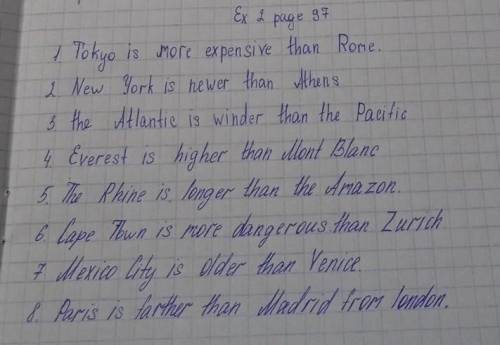 Ex 2 page 97
1. Tokyo is more expensive than Rome.
2. New York is newer than Athens
3. the Atlantic is winder than the Pacific
4. Everest is higher than Mont Blanc
5. The Rhine is longer than the Amazon.
6. Cape Town is more dangerous than Zurich
7. Mexico City is older than Venice.
8. Paris is farther than Madrid from london.